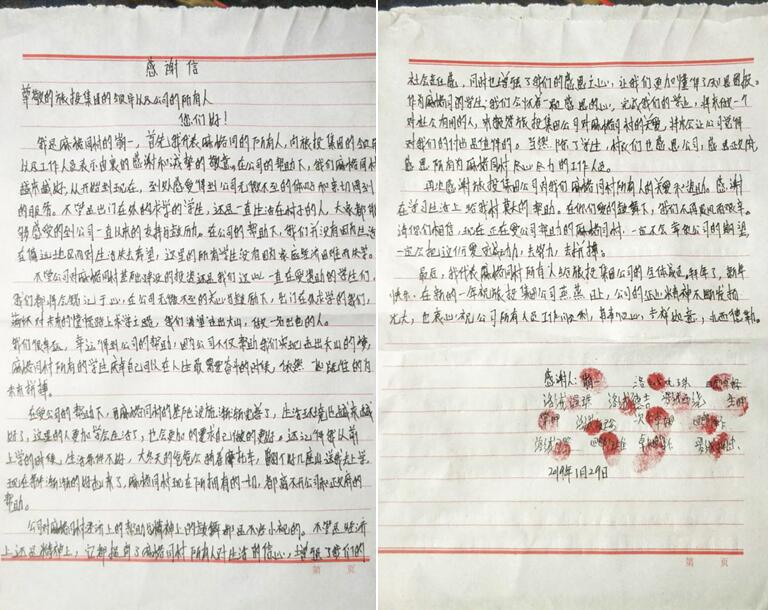 感谢信
尊敬的旅投集团的领导以及公司的所有人
你们好!
我是麻撒同村的 一,首先我代表麻撒同的所有人,向旅投集团的领导
以及工作人员表示由衷的感谢和诚挚的敬意。在公司的帮助下,我们麻撒同村
越来越好,从开始到现在,到处感受得到公司无微不至的体贴和亲切周到
的服务。不管是出门在外的求学的学生,还是一直生活在村子的人,大家都能
够感受的到公司一直以来的支持与鼓励。在公司的帮助下,我们并没有因为生活
在偏远地区而对生活失去希望,这里的所有学生没有因为家庭经济困难而失学。
不管公司对麻撒同村基础建设的投资还是我们这些一直在受资助的学生们,
我们都将会铭记于心,在公司无微不至的关心与鼓励下,出门在外求学的我们,
怀对未来的憧憬踏上求学之路,我们渴望走出大山,做一名出色的人。
我们很幸运,幸运得到公司的帮助,因为公司不仅帮助我们实现走出大山的梦,
麻撒同村所有的学生庆幸自己可以在人生最需要奋斗的时候,依然 的为
未来拼搏。
在受公司的帮助下,麻撒同村的基础设施渐渐完善了,生活环境也越来越
好了,这里的人更加学会生活了,也会更加的要求自己做的更好。还记得我从前
上学的时候,生活条件不好,大冬天的爸爸会骑着摩托车,翻个好几座山送我去上学。
现在条件渐渐的好起来了,麻撒同村现在所拥有的一切,都离不开公司和政府的
帮助。
公司对麻撒同村经济上的帮助与精神上的鼓舞都是不容小视的。不管是经济
上还是精神上,它都提高了麻撒同村所有人对生活的信心,增强了我们的
第 页
社会责任感,同时也增强了我们的感恩之心,让我们更加懂得了知恩图报。
作为麻撒同的学生,我们会怀着一颗感恩的心,完成我们的学业,将来做一个
对社会有用的人,来报答旅投集团公司对麻撒同村的关爱,并永会让公司觉得
对我们的付出是值得的。当然,除了学生,村民们也感恩公司,感恩政府,
感恩所有为麻撒同村尽心尽力的工作人员。
再次感谢旅投集团公司对我们麻撒同村所有人的关爱和资助。感谢
在学习生活上给我村莫大的帮助。在你们爱的鼓舞下,我们不再畏风雨艰辛。
请你们相信,现在正在受公司帮助的麻撒同村,一定不会辜负公司的期望,
一定会把这份爱变成动力,去努力,去拼搏。
最后,我代表麻撒同村所有人给旅投集团公司的全体成员,新年了,新年
快乐。在新的一年祝旅投集团公司蒸蒸日上,公司的企业精神不断发扬
光大,也衷心祝公司所有人员工作顺利,身体健康,吉祥如意,扎西德勒。
感谢人:
2019年1月29日
第 页